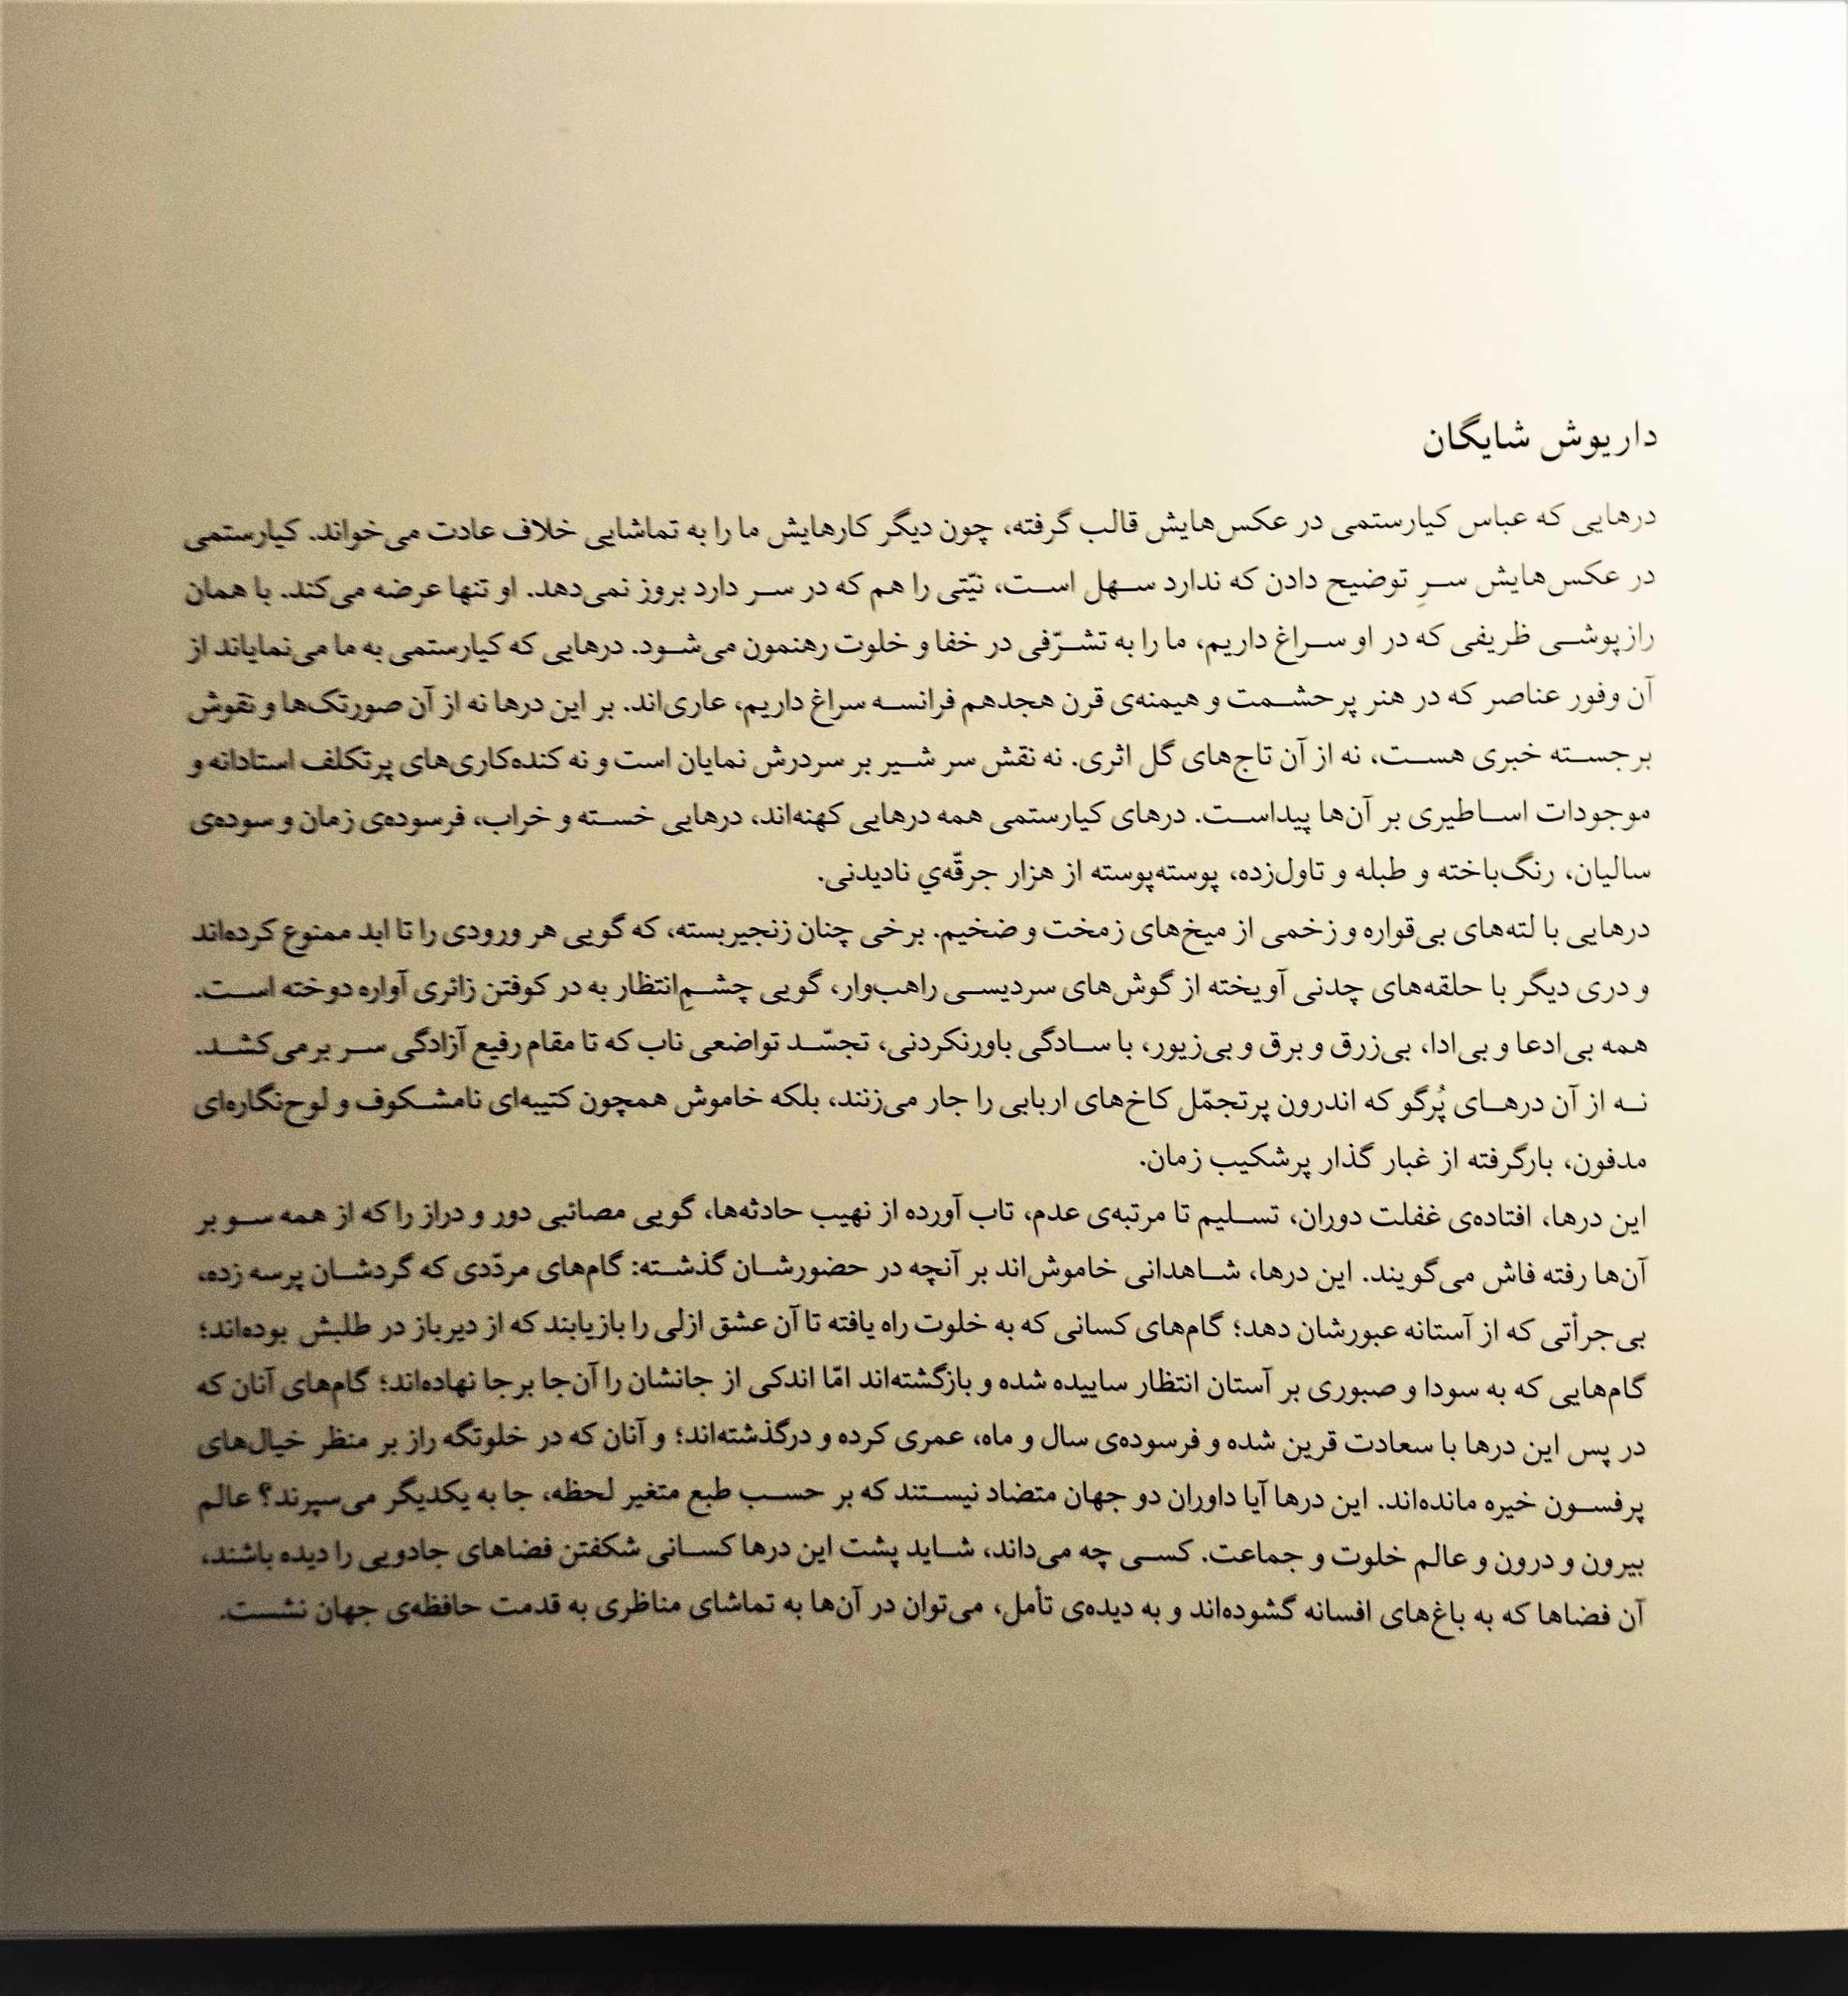 داریوش شایگان
درهایی که عباس کیارستمی در عکس‌هایش قالب گرفته، چون دیگر کارهایش ما را به تماشایی خلاف عادت می‌خواند. کیارستمی
در عکس‌هایش سرِ توضیح دادن که ندارد سهل است، نیّتی را هم که در سر دارد بروز نمی‌دهد. او تنها عرضه می‌کند. با همان
رازپوشی ظریفی که در او سراغ داریم، ما را به تشرّفی در خفا و خلوت رهنمون می‌شود. درهایی که کیارستمی به ما می‌نمایاند از
آن وفور عناصر که در هنر پرحشمت و هیمنه‌ی قرن هجدهم فرانسه سراغ داریم، عاری‌اند. بر این درها نه از آن صورتک‌ها و نقوش
برجسته خبری هست، نه از آن تاج‌های گل اثری. نه نقش سر شیر بر سردرش نمایان است و نه کنده‌کاری‌های پرتکلف استادانه و
موجودات اساطیری بر آن‌ها پیداست. درهای کیارستمی همه درهایی کهنه‌اند، درهایی خسته و خراب، فرسوده‌ی زمان و سوده‌ی
سالیان، رنگ‌باخته و طبله و تاول‌زده، پوسته‌پوسته از هزار جرقّه‌ي نادیدنی.
درهایی با لته‌های بی‌قواره و زخمی از میخ‌های زمخت و ضخیم. برخی چنان زنجیربسته، که گویی هر ورودی را تا ابد ممنوع کرده‌اند
و دری دیگر با حلقه‌های چدنی آویخته از گوش‌های سردیسی راهب‌وار، گویی چشمِ‌انتظار به در کوفتن زائری آواره دوخته است.
همه بی‌ادعا و بی‌ادا، بی‌زرق و برق و بی‌زیور، با سادگی باورنکردنی، تجسّد تواضعی ناب که تا مقام رفیع آزادگی سر برمی‌کشد.
نه از آن درهای پُرگو که اندرون پرتجمّل کاخ‌های اربابی را جار می‌زنند، بلکه خاموش همچون کتیبه‌ای نامشکوف و لوح‌نگاره‌ای
مدفون، بارگرفته از غبار گذار پرشکیب زمان.
این درها، افتاده‌ی غفلت دوران، تسلیم تا مرتبه‌ی عدم، تاب آورده از نهیب حادثه‌ها، گویی مصائبی دور و دراز را که از همه سو بر
آن‌ها رفته فاش می‌گویند. این درها، شاهدانی خاموش‌اند بر آنچه در حضورشان گذشته: گام‌های مردّدی که گردشان پرسه زده،
بی‌جرأتی که از آستانه عبورشان دهد؛ گام‌های کسانی که به خلوت راه یافته تا آن عشق ازلی را بازیابند که از دیرباز در طلبش بوده‌اند؛
گام‌هایی که به سودا و صبوری بر آستان انتظار ساییده شده و بازگشته‌اند امّا اندکی از جانشان را آن‌جا برجا نهاده‌اند؛ گام‌های آنان که
در پس این درها با سعادت قرین شده و فرسوده‌ی سال و ماه، عمری کرده و درگذشته‌اند؛ و آنان که در خلوتگه راز بر منظر خیال‌های
پرفسون خیره مانده‌اند. این درها آیا داوران دو جهان متضاد نیستند که بر حسب طبع متغیر لحظه، جا به یکدیگر می‌سپرند؟ عالم
بیرون و درون و عالم خلوت و جماعت. کسی چه می‌داند، شاید پشت این درها کسانی شکفتن فضاهای جادویی را دیده باشند،
آن فضاها که به باغ‌های افسانه گشوده‌اند و به دیده‌ی تأمل، می‌توان در آن‌ها به تماشای مناظری به قدمت حافظه‌ی جهان نشست.